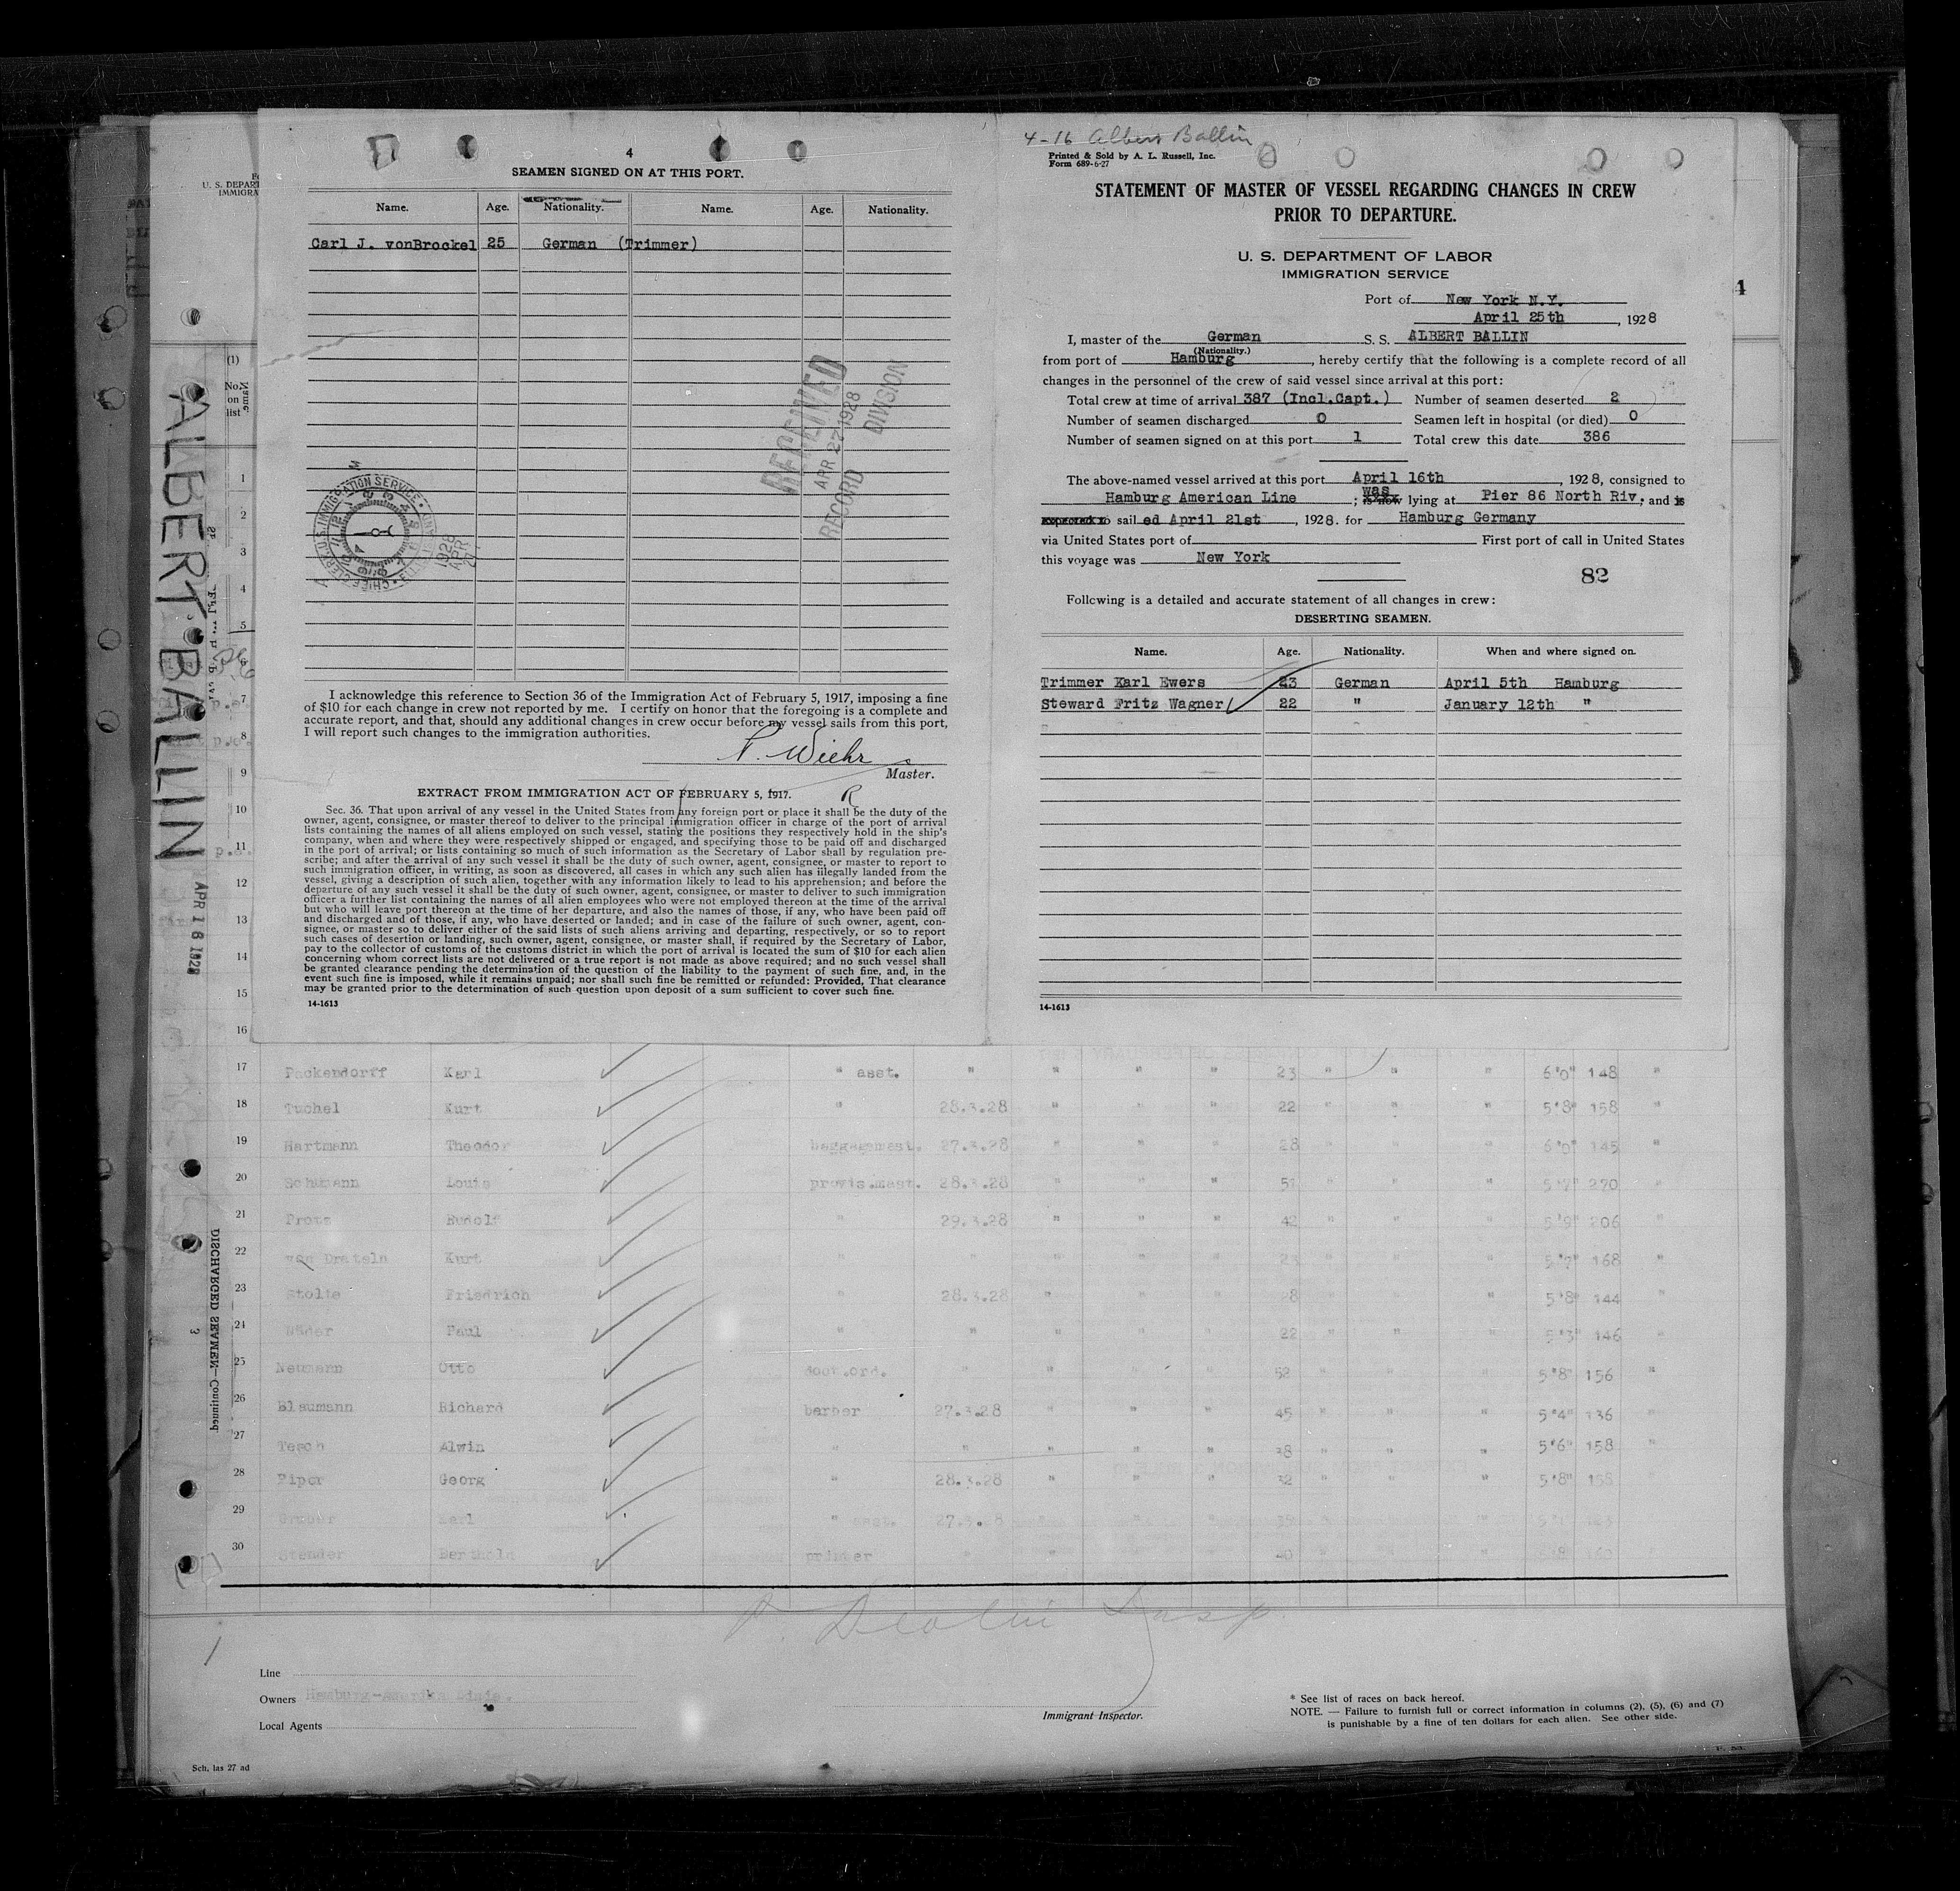 4
SEAMEN SIGNED ON AT THIS PORT.
Name. Age. Nationality. Name. Age. Nationality.
Carl J. vonBrockel 25 German (Trimmer)
RECEIVED
APR 27 1928
RECORD DIVISION
I acknowledge this reference to Section 36 of the Immigration Act of February 5, 1917, imposing a fine
of $10 for each change in crew not reported by me. I certify on honor that the foregoing is a complete and
accurate report, and that, should any additional changes in crew occur before my vessel sails from this port,
I will report such changes to the immigration authorities.
P. Wiehr
Master.
EXTRACT FROM IMMIGRATION ACT OF FEBRUARY 5, 1917.
Sec. 36. That upon arrival of any vessel in the United States from any foreign port or place it shall be the duty of the
owner, agent, consignee, or master thereof to deliver to the principal immigration officer in charge of the port of arrival
lists containing the names of all aliens employed on such vessel, stating the positions they respectively hold in the ship's
company, when and where they were respectively shipped or engaged, and specifying those to be paid off and discharged
in the port of arrival; or lists containing so much of such information as the Secretary of Labor shall by regulation pre-
scribe; and after the arrival of any such vessel it shall be the duty of such owner, agent, consignee, or master to report to
such immigration officer, in writing, as soon as discovered, all cases in which any such alien has illegally landed from the
vessel, giving a description of such alien, together with any information likely to lead to his apprehension; and before the
departure of any such vessel it shall be the duty of such owner, agent, consignee, or master to deliver to such immigration
officer a further list containing the names of all alien employees who were not employed thereon at the time of the arrival
but who will leave port thereon at the time of her departure, and also the names of those, if any, who have been paid off
and discharged and of those, if any, who have deserted or landed; and in case of the failure of such owner, agent, con-
signee, or master so to deliver either of the said lists of such aliens arriving and departing, respectively, or so to report
such cases of desertion or landing, such owner, agent, consignee, or master shall, if required by the Secretary of Labor,
pay to the collector of customs of the customs district in which the port of arrival is located the sum of $10 for each alien
concerning whom correct lists are not delivered or a true report is not made as above required; and no such vessel shall
be granted clearance pending the determination of the question of the liability to the payment of such fine, and, in the
event such fine is imposed, while it remains unpaid; nor shall such fine be remitted or refunded: Provided, That clearance
may be granted prior to the determination of such question upon deposit of a sum sufficient to cover such fine.
14-1613
4-16 Albert Ballin
Printed & Sold by A. L. Russell, Inc.
Form 689-6-27
STATEMENT OF MASTER OF VESSEL REGARDING CHANGES IN CREW
PRIOR TO DEPARTURE.
U. S. DEPARTMENT OF LABOR
IMMIGRATION SERVICE
Port of New York N.Y.
April 25th, 1928
I, master of the German S. S. ALBERT BALLIN
(Nationality.)
from port of Hamburg, hereby certify that the following is a complete record of all
changes in the personnel of the crew of said vessel since arrival at this port:
Total crew at time of arrival 387 (Incl.Capt.) Number of seamen deserted 2
Number of seamen discharged 0 Seamen left in hospital (or died) 0
Number of seamen signed on at this port 1 Total crew this date 386
The above-named vessel arrived at this port April 16th, 1928, consigned to
Hamburg American Line; was lying at Pier 86 North Riv. and is
expected to sailed April 21st, 1928. for Hamburg Germany
via United States port of First port of call in United States
this voyage was New York
82
Following is a detailed and accurate statement of all changes in crew:
DESERTING SEAMEN.
Name. Age. Nationality. When and where signed on.
Trimmer Karl Ewers 23 German April 5th Hamburg
Steward Fritz Wagner 22 " January 12th "
14-1613
ALBERT BALLIN
APR 16 1928
DISCHARGED SEAMEN—Continued
3
(1)
No. on list
1
2
3
4
5
7
8
9
10
11
12
13
14
15
16
17 Packendorff Karl " asst. " " " " 23 " " " 6'0" 148 "
18 Tuchel Kurt " 28.3.28 " " " 22 " " " 5'8" 158 "
19 Hartmann Theodor baggagemast. 27.3.28 " " " 28 " " " 6'0" 145 "
20 Schumann Louis provis.mast. 28.3.28 " " " 51 " " " 5'7" 270 "
21 Rudolf " 29.3.28 " " " 42 " " " 5'9" 206 "
22 Kurt " " " " " 23 " " " 5'7" 168 "
23 Stolte Friedrich " 28.3.28 " " " 28 " " " 5'8" 144 "
24 Paul " " " " " 22 " " " 5'3" 146 "
25 Neumann Otto " " " " 52 " " " 5'8" 156 "
26 Blaumann Richard barber 27.3.28 " " " 45 " " " 5'4" 136 "
27 Tesch Alwin " " " " " 38 " " " 5'6" 158 "
28 Piper Georg " 28.3.28 " " " 32 " " " 5'8" 158
29 Karl " asst. 27.3.28
30 Stender Berthold printer
Line
Owners Hamburg-Amerika Linie.
Local Agents
Immigrant Inspector.
* See list of races on back hereof.
NOTE. — Failure to furnish full or correct information in columns (2), (5), (6) and (7)
is punishable by a fine of ten dollars for each alien. See other side.
Sch. las 27 ad